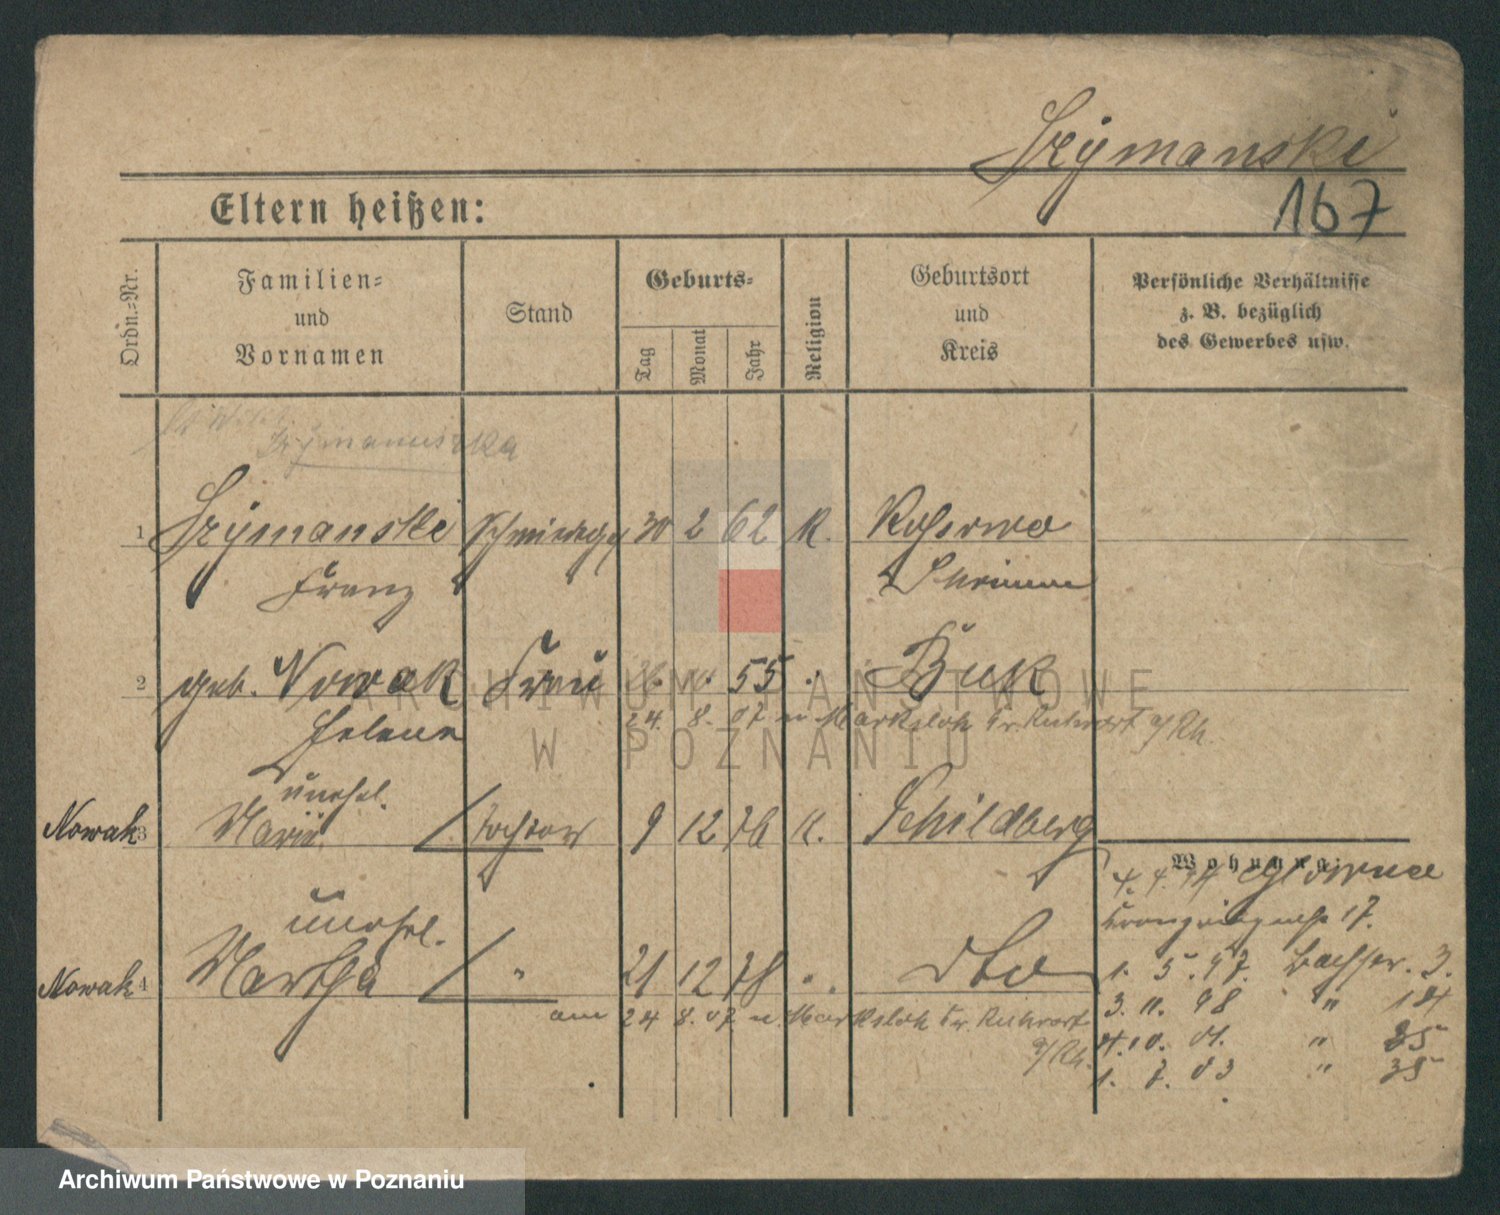 Szymanski
167
Eltern heißen:
Ordn.-Nr.
Familien-
und
Vornamen
Stand
Geburts-
Tag
Monat
Jahr
Religion
Geburtsort
und
Kreis
Persönliche Verhältnisse
z. B. bezüglich
des Gewerbes usw.
Szymanuszka
1 Szymanski 30 2 62 K.
Franz Schrimm
2 geb. Nowak Frau 55 Buk
Helene 24. 8. 07 n Marxloh Kr. Ruhrort a/Rh.
unehel.
Nowak 3 Marie Tochter 9 12 76 K. Schildberg
Wohnung:
4. 4. Glowno
unehel. 17.
Nowak 4 Martha " 21 12 78 " dto 1. 5. 97. 3.
am 24 8. 07 n. Marxloh Kr. Ruhrort 3. 11. 98 " 14
a/Rh. 10. 01. " 25
1. 7. 03 " 35
ARCHIWUM PAŃSTWOWE
W POZNANIU
Archiwum Państwowe w Poznaniu